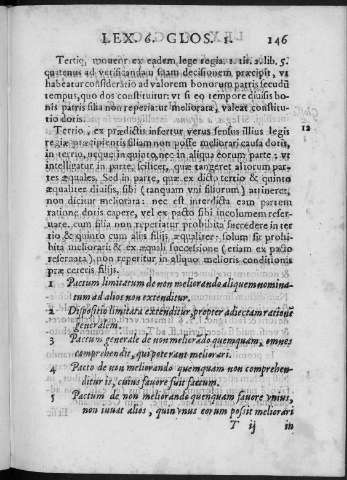 LEX. 6. GLOS. 1. 146
Tertio, mouent ex eadem lege regia. 1. tit. 2. lib. 5.
quatenus ad verificandam suam decisionem præcipit, vt
habeatur consideratio ad valorem bonorum patris secundũ
tempus, quo dos constituitur: vt si eo tempore diuisis bo-
nis patris filia non reperiatur meliorata, valeat constitu-
tio doris.
Tertio, ex prædictis infertur verus sensus illius legis 12
regiæ præcipientis filiam non posse meliorari causa doris,
in tertio, neque in quinto, nec in aliqua eorum parte: vt
intelligatur in parte, scilicet, quæ augeret aliorum par-
tes æquales. Sed in parte, quæ ex dicto tertio & quinto
æqualiter diuisis, sibi (tanquam vni filiorum) attineret,
non dicitur meliorara: nec est interdicta eam partem
ratione doris capere, vel ex pacto sibi incolumem reser-
uare, cum filia non reperiatur prohibita succedere in ter
tio & quinto cum aliis filijs æqualiter: solum sit prohi-
bita meliorari: & ex æquali successione (etiam ex pacto
reseruata), non reperitur in aliquo melioris conditionis
præ cæteris filijs.
1 Pactum limitatum de non meliorando aliquem nomina-
tum ad alios non extenditur.
2 Dispositio limitata extenditur, propter adiectam rationẽ
generalem.
3 Pactum generale de non meliorado quemquam, omnes
comprehendit, qui poterant meliorari.
4 Pacto de non meliorando quemquam non comprehen-
ditur is, cuius fauore fuit factum.
5 Pactum de non meliorando quenquam fauore vnius,
non iuuat alios, quin vnus eorum possit meliorari
T ij in